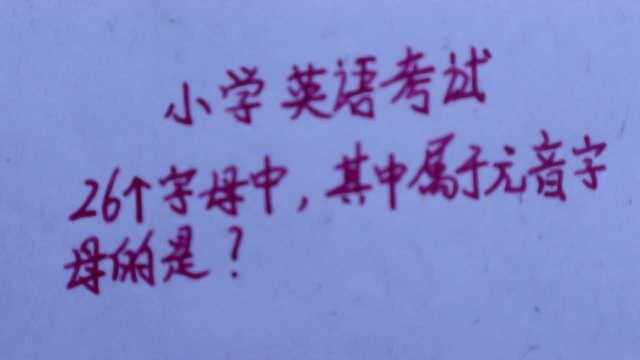 小学英语考试
26个字母中,其中属于元音字
母的是?